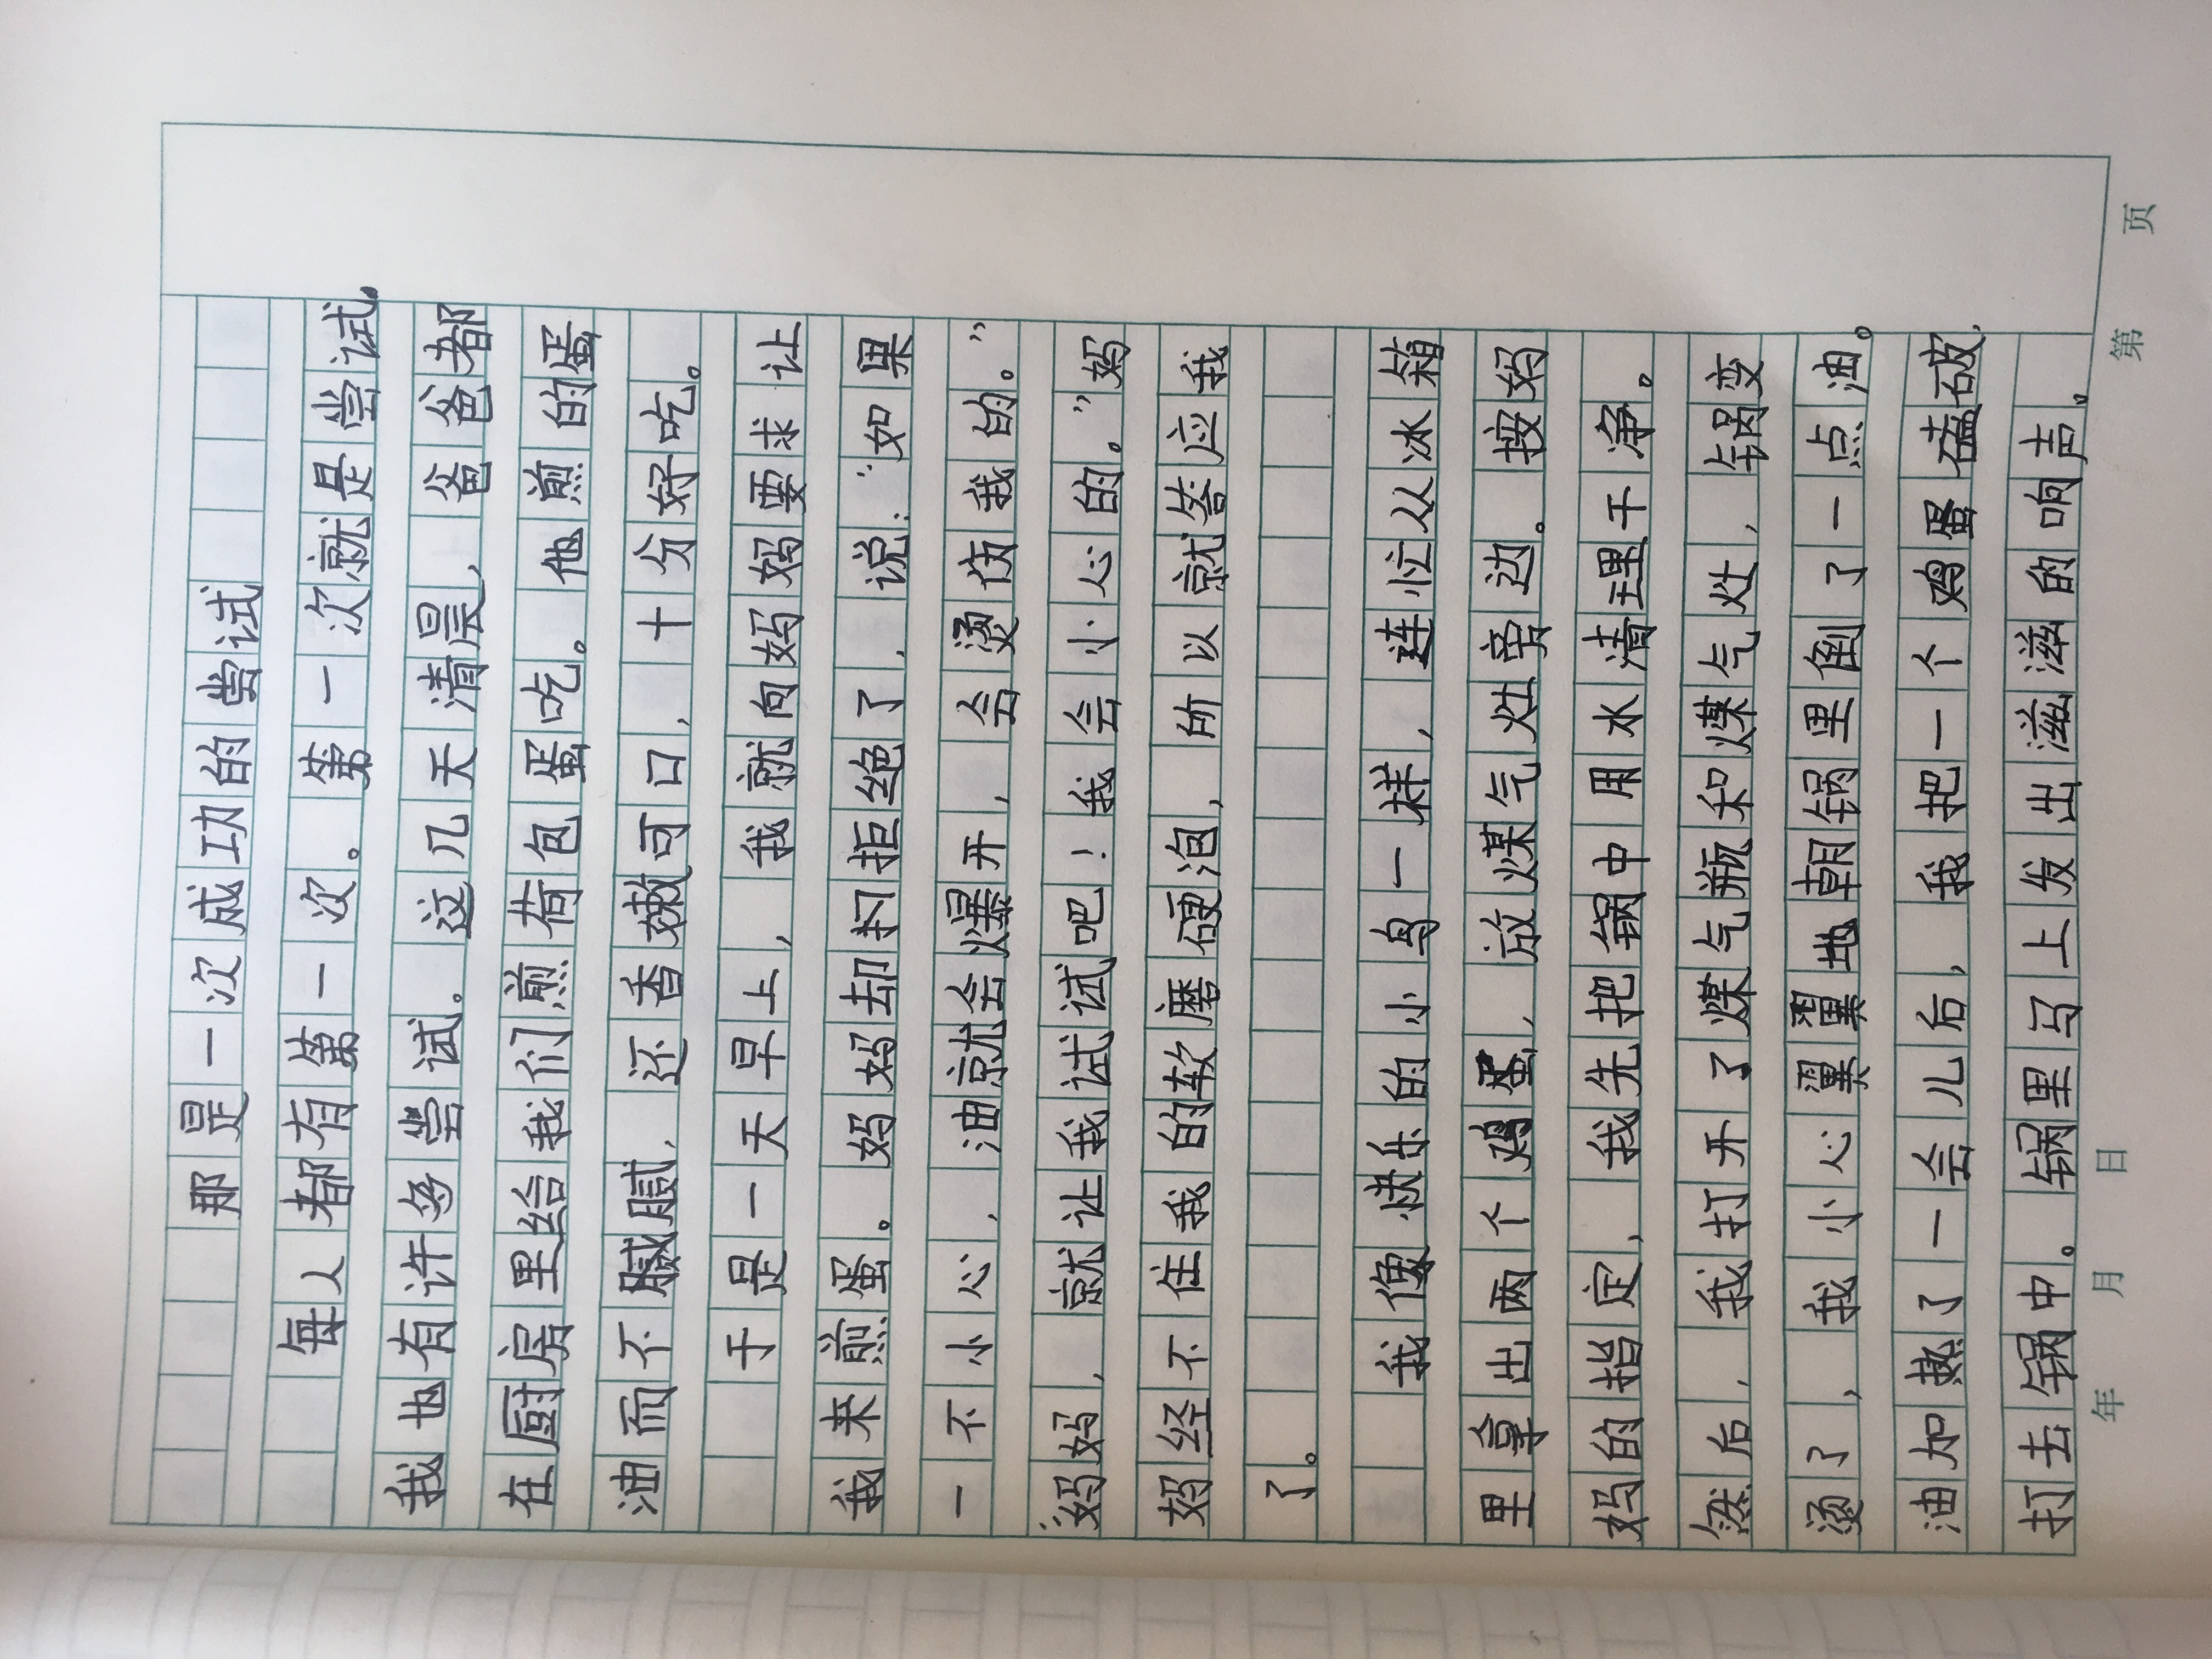 那是一次成功的尝试
每人都有第一次。第一次就是尝试。
我也有许多尝试。这几天清晨，爸爸都
在厨房里给我们煎荷包蛋吃。他煎的蛋
油而不腻腻，还香嫩可口，十分好吃。
于是一天早上，我就向妈妈要求让
我来煎蛋。妈妈却扪拒绝了，说：“如果
一不小心，油就会爆开，会烫伤我的。”
“妈妈，就让我试试吧！我会小心的。”妈
妈经不住我的软磨硬泡，所以就答应我
了。
我像快乐的小鸟一样，连忙从冰箱
里拿出两个鸡蛋，放煤气灶旁边。按妈
妈的指定，我先把锅中用水清理干净。
然后，我打开了煤气瓶和煤气灶，锅变
烫了，我小心翼翼地朝锅里倒了一点油。
油加热了一会儿后，我把一个鸡蛋磕破，
打去锅中。锅里马上发出滋滋的响声。
年 月 日 第 页